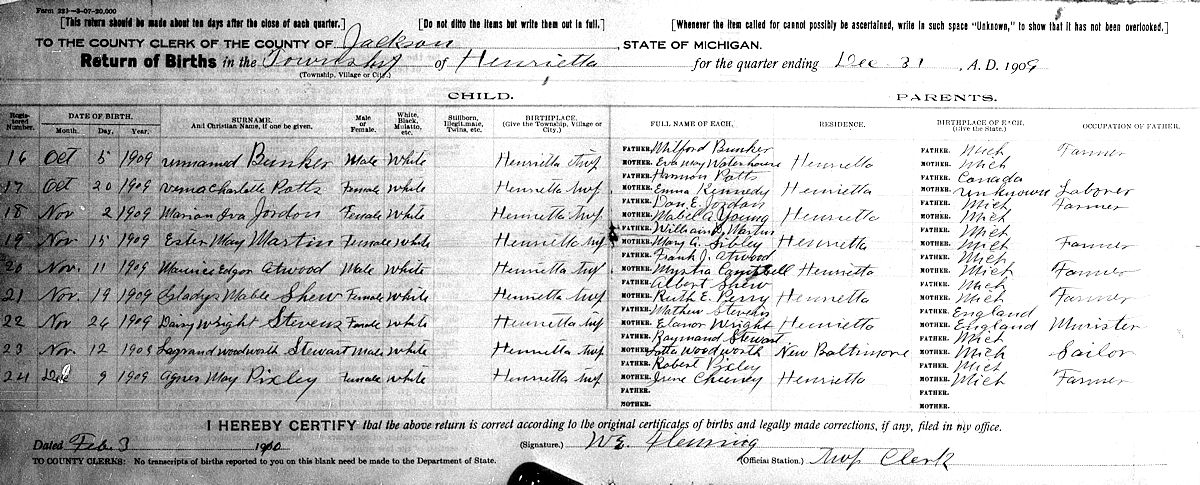 Form 221—3-07-20,000
[This return should be made about ten days after the close of each quarter.] [Do not ditto the items but write them out in full.] [Whenever the item called for cannot possibly be ascertained, write in such space "Unknown," to show that it has not been overlooked.]
TO THE COUNTY CLERK OF THE COUNTY OF Jackson, STATE OF MICHIGAN.
Return of Births in the Township of Henrietta for the quarter ending Dec 31, A. D. 1909
(Township, Village or City.)
CHILD. PARENTS.
Registered Number. DATE OF BIRTH. Month. Day. Year. SURNAME. And Christian Name, if one be given. Male or Female. White, Black, Mulatto, etc. Stillborn, Illegitimate, Twins, etc. BIRTHPLACE. (Give the Township, Village or City.) FULL NAME OF EACH. RESIDENCE. BIRTHPLACE OF EACH. (Give the State.) OCCUPATION OF FATHER.
FATHER. Milford Bunker FATHER. Mich Farmer
16 Oct 5 1909 unnamed Bunker Male White Henrietta Twp MOTHER. Eva May Waterhouse Henrietta MOTHER. Mich
FATHER. Harmon Potts FATHER. Canada
17 Oct 20 1909 Verna Charlotte Potts Female White Henrietta Twp MOTHER. Emma Kennedy Henrietta MOTHER. unknown Laborer
FATHER. Dan E. Jordon FATHER. Mich Farmer
18 Nov 2 1909 Marian Iva Jordon Female White Henrietta Twp MOTHER. Mabel A. Young Henrietta MOTHER. Mich
FATHER. William D. Martin FATHER. Mich
19 Nov 15 1909 Ester May Martin Female White Henrietta Twp MOTHER. Mary A. Sibley Henrietta MOTHER. Mich Farmer
FATHER. Frank J. Atwood FATHER. Mich
20 Nov. 11 1909 Maurice Edgar Atwood Male White Henrietta Twp MOTHER. Campbell Henrietta MOTHER. Mich Farmer
FATHER. Albert Shew FATHER. Mich
21 Nov. 19 1909 Gladys Mable Shew Female White Henrietta Twp MOTHER. Ruth E. Perry Henrietta MOTHER. Mich Farmer
FATHER. Mathew Stevens FATHER. England
22 Nov 26 1909 Wright Stevens Female White Henrietta Twp MOTHER. Elanor Wright Henrietta MOTHER. England Minister
FATHER. Raymond Stewart FATHER. Mich
23 Nov. 12 1909 Lagrand Woodworth Stewart Male White Henrietta Twp MOTHER. Woodworth New Baltimore MOTHER. Mich Sailor
FATHER. Robert Pixley FATHER. Mich
24 Dec 9 1909 Agnes May Pixley Female White Henrietta Twp MOTHER. Irene Cheeney Henrietta MOTHER. Mich Farmer
FATHER. FATHER.
MOTHER. MOTHER.
I HEREBY CERTIFY that the above return is correct according to the original certificates of births and legally made corrections, if any, filed in my office.
Dated Feb. 3 1910 (Signature.) W E Fleming
TO COUNTY CLERKS: No transcripts of births reported to you on this blank need be made to the Department of State. (Official Station.) Twp Clerk